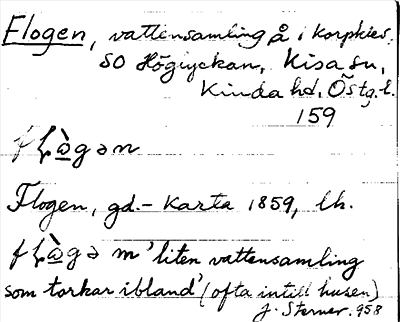 Flogen, vattensamling å i korpkies,
SO Högiyckan, Kisa sn,
Kinda hd, Östg. l.
159
fɫὰgən
Flogen, gd.- karta 1859, lh.
fɫὰgə m 'liten vattensamling
som torkar ibland' (ofta intill husen)
J. Sterner. 958